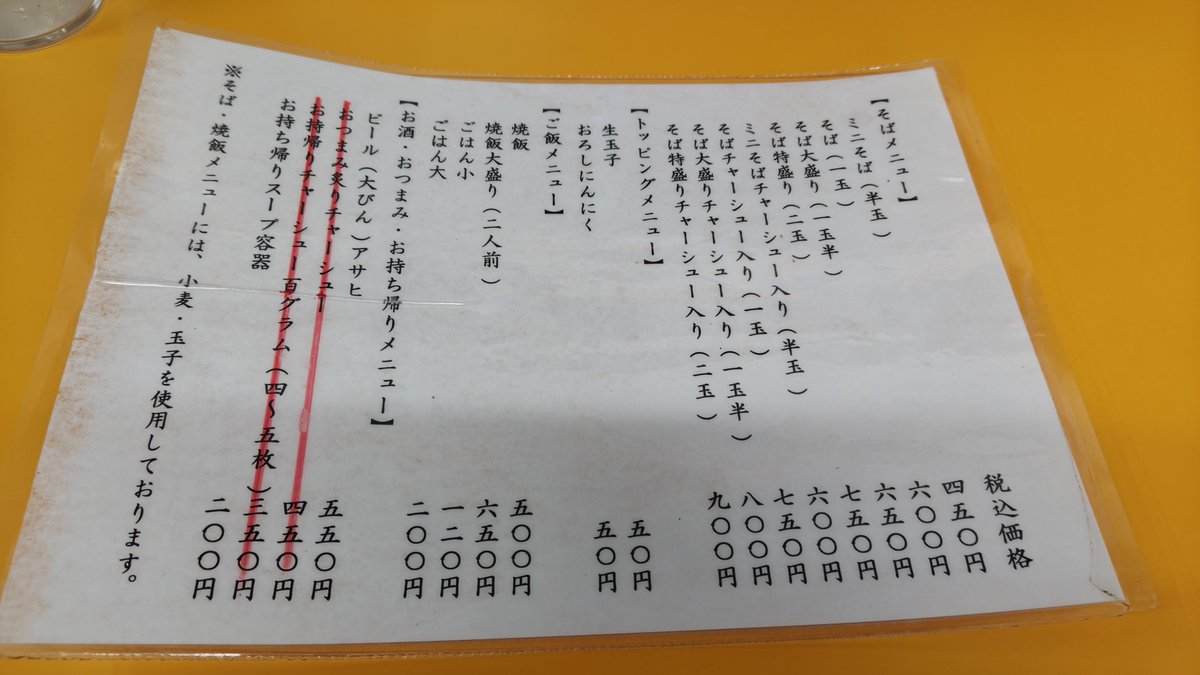 税込価格
【そばメニュー】
ミニそば(半玉) 四五〇円
そば(一玉) 六〇〇円
そば大盛り(一玉半) 六五〇円
そば特盛り(二玉) 七五〇円
ミニそばチャーシュー入り(半玉) 六〇〇円
そばチャーシュー入り(一玉) 七五〇円
そば大盛りチャーシュー入り(一玉半) 八〇〇円
そば特盛りチャーシュー入り(二玉) 九〇〇円
【トッピングメニュー】
生玉子 五〇円
おろしにんにく 五〇円
【ご飯メニュー】
焼飯 五〇〇円
焼飯大盛り(二人前) 六五〇円
ごはん小 一二〇円
ごはん大 二〇〇円
【お酒・おつまみ・お持ち帰りメニュー】
ビール(大びん)アサヒ 五五〇円
おつまみ炙りチャーシュー 四五〇円
お持帰りチャーシュー百グラム(四〜五枚) 三五〇円
お持ち帰りスープ容器 二〇〇円
※そば・焼飯メニューには、小麦・玉子を使用しております。